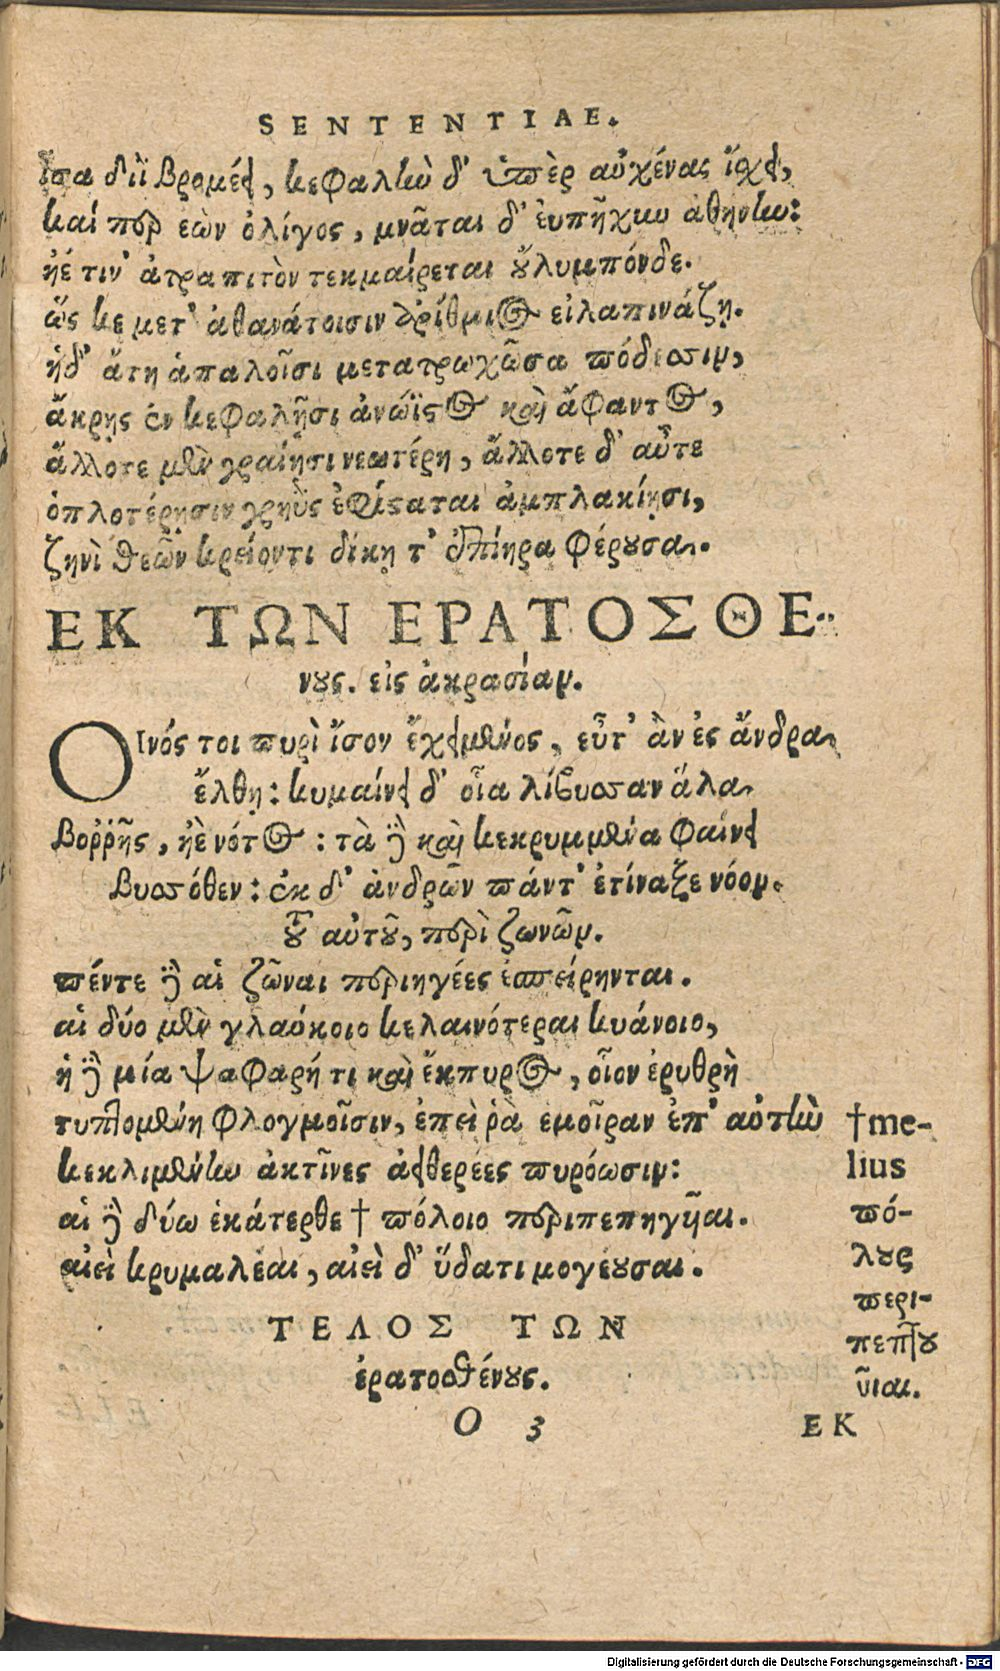 SENTENTIAE.
ἶσα διῒ βρομέει, κεφαλὴν δ' ὑπὲρ αὐχένας ἴσχει,
καί περ ἐὼν ὀλίγος, μνᾶται δ' ἐυπῆχυν ἀθήνην:
ἠέ τιν' ἀτραπιτὸν τεκμαίρεται οὔλυμπόνδε.
ὥς κε μετ' ἀθανάτοισιν ἀρίθμιος εἰλαπινάζῃ.
ἡδ' ἄτη ἁπαλοῖσι μετατρωχῶσα πόδεσσιν,
ἄκρης ἐν κεφαλῇσι ἀνώϊστος καὶ ἄφαντος,
ἄλλοτε μὲν γραίῃσι νεωτέρη, ἄλλοτε δ' αὖτε
ὁπλοτέρῃσιν γρηῢς ἐφίσταται ἀμπλακίῃσι,
ζηνὶ θεῶν κρείοντι δίκῃ τ' ἐπίηρα φέρουσα.
ΕΚ ΤΩΝ ΕΡΑΤΟΣΘΕ-
νους. εἰς ἀκρασίαν.
ΟΙνός τοι πυρὶ ἴσον ἔχει μένος, εὖτ' ἂν ἐς ἄνδρα
ἔλθῃ: κυμαίνει δ' οἷα λίβυσσαν ἅλα
Βοῤῥῆς, ἠὲ νότος: τὰ δὲ καὶ κεκρυμμένα φαίνει
Βυσσόθεν: ἐκ δ' ἀνδρῶν πάντ' ἐτίναξε νόον.
τοῦ αὐτοῦ, περὶ ζωνῶν.
πέντε δὲ αἱ ζῶναι περιηγέες ἐσπείρηνται.
αἱ δύο μὲν γλαύκοιο κελαινότεραι κυάνοιο,
ἡ δὲ μία ψαφαρή τι καὶ ἔκπυρος, οἷον ἐρυθρὴ
τυπτομένη φλογμοῖσιν, ἐπεὶ ῥὰ ἑμοῖραν ἐπ' αὐτὴν
κεκλιμένην ἀκτῖνες ἀειθερέες πυρόωσιν:
αἱ δὲ δύω ἑκάτερθε † πόλοιο περιπεπηγῆαι.
αἰεὶ κρυμαλέαι, αἰεὶ δ' ὕδατι μογέουσαι.
†me-
lius
πό-
λους
περι-
πεπτου
ῦιαι.
ΤΕΛΟΣ ΤΩΝ
ἐρατοσθένους.
O 3
ΕΚ
Digitalisierung gefördert durch die Deutsche Forschungsgemeinschaft - DFG